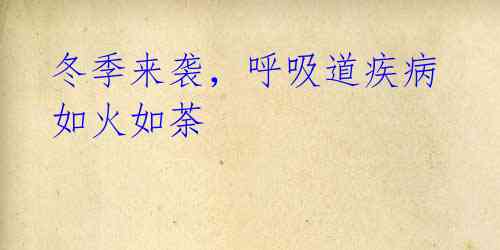 冬季来袭，呼吸道疾病
如火如荼